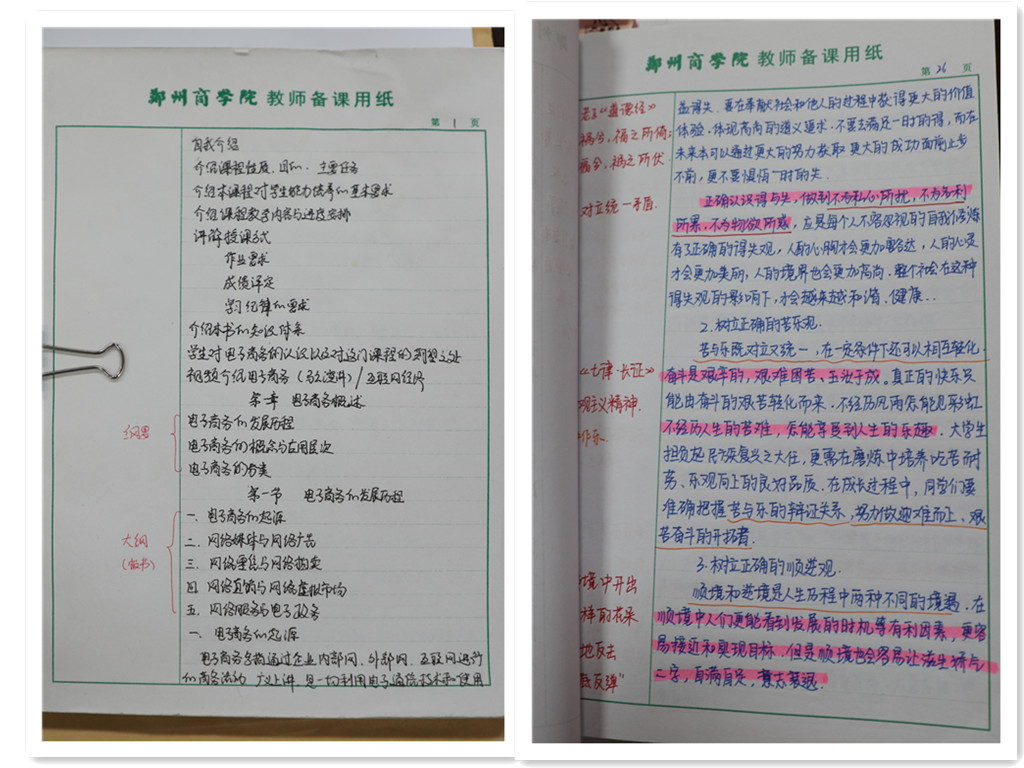 郑州商学院 教师备课用纸
第 1 页
自我介绍
介绍课程性质、目的、主要任务
介绍本课程对学生能力培养的基本要求
介绍课程教学内容与进度安排
讲解授课方式
作业要求
成绩评定
学习纪律的要求
介绍本书的知识体系
学生对电子商务的认识以及对这门课程的期望之处
视频介绍电子商务（马云演讲）/互联网经济
第一章 电子商务概述
电子商务的发展历程
电子商务的概念与应用层次
电子商务的分类
第一节 电子商务的发展历程
大纲
（板书）
一、电子商务的起源
二、网络媒体与网络广告
三、网络零售与网络拍卖
四、网络直销与网络虚拟市场
五、网络服务与电子政务
一、电子商务的起源
电子商务是指通过企业内部网、外部网、互联网进行
的商务活动 广义上讲，是一切利用电子通信技术和使用
郑州商学院 教师备课用纸
第 26 页
老子《道德经》
祸兮，福之所倚；
福兮，祸之所伏
对立统一矛盾.
《七律·长征》
观主义精神.
作乐.
境中开出
样的花朵
地反击
底反弹”
益得失、喜在奉献社会和他人的过程中获得更大的价值
体验.体现高尚的道义要求.不要去满足一时的得，而在
未来本可以通过更大的努力获取更大的成功面前止步
不前，更不要惧怕一时的失.
正确认识得与失，做到不为私心所扰，不为名利
所累，不为物欲所惑，应是每个人不容忽视的自我修炼
有了正确的得失观，人的心胸才会更加豁达，人的心灵
才会更加美丽，人的境界也会更加高尚.整个社会在这种
得失观的影响下，才会越来越和谐.健康..
2.树立正确的苦乐观.
苦与乐既对立又统一，在一定条件下还可以相互转化.
奋斗是艰辛的，艰难困苦、玉汝于成。真正的快乐只
能由奋斗的艰苦转化而来.不经历风雨怎能见彩虹
不经历人生的苦难，怎能享受到人生的乐趣.大学生
担负起民族复兴之大任，更需在磨炼中培养吃苦耐
劳、乐观向上的良好品质.在成长过程中，同学们要
准确把握苦与乐的辩证关系，努力做迎难而上、艰
苦奋斗的开拓者.
3.树立正确的顺逆观.
顺境和逆境是人生历程中两种不同的境遇.在
顺境中人们更能看到发展的时机等有利因素，更容
易接近和实现目标.但是顺境也会容易让滋生骄
二字，自满自足，意志衰退.